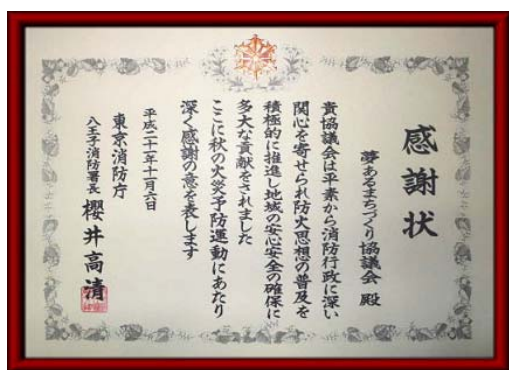 感謝状
夢あるまちづくり協議会 殿
貴協議会は平素から消防行政に深い
関心を寄せられ防火思想の普及を
積極的に推進し地域の安心安全の確保に
多大な貢献をされました
ここに秋の火災予防運動にあたり
深く感謝の意を表します
平成二十一年十一月六日
東京消防庁
八王子消防署長 櫻井高清